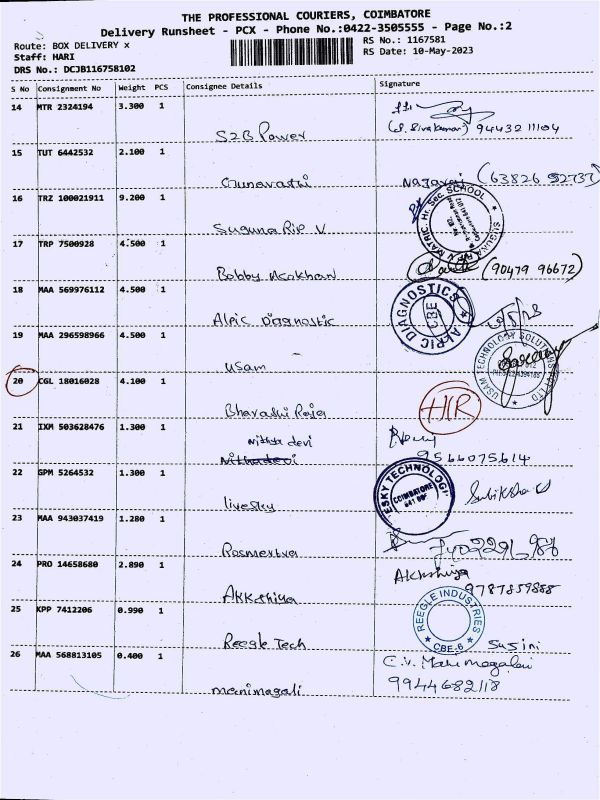 THE PROFESSIONAL COURIERS, COIMBATORE
Delivery Runsheet - PCX - Phone No.:0422-3505555 - Page No.:2
Route: BOX DELIVERY x RS No.: 1167581
Staff: HARI RS Date: 10-May-2023
DRS No.: DCJB116758102
S No Consignment No Weight PCS Consignee Details Signature
14 MTR 2324194 3.300 1
S2B Power (S. Sivakumar) 94432 11104
15 TUT 6442532 2.100 1
Nagaraj
16 TRZ 100021911 9.200 1
Suguna Rip V
SUGUNA RIP V MATRIC. Hr. Sec. SCHOOL
17 TRP 7500928 4.500 1
Bobby (90479 96672)
18 MAA 569976112 4.500 1
Alpic Diagnostic
ALPIC DIAGNOSTICS CBE
19 MAA 296598966 4.500 1
usam
USAM TECHNOLOGY SOLUTIONS PVT LTD
20 CGL 18016028 4.100 1
Bharathi Raja
21 IXM 503628476 1.300 1
Nithya devi
Nithadevi 9566075614
22 GPM 5264532 1.300 1
livesky
ESKY TECHNOLOGI COIMBATORE
23 MAA 943037419 1.280 1
24 PRO 14658680 2.890 1
Akkshiya Akhshiya
9787859888
25 KPP 7412206 0.990 1
Reegle Tech Susini
REEGLE INDUSTRIES CBE-6
26 MAA 568813105 0.400 1
manimagali 9944682118